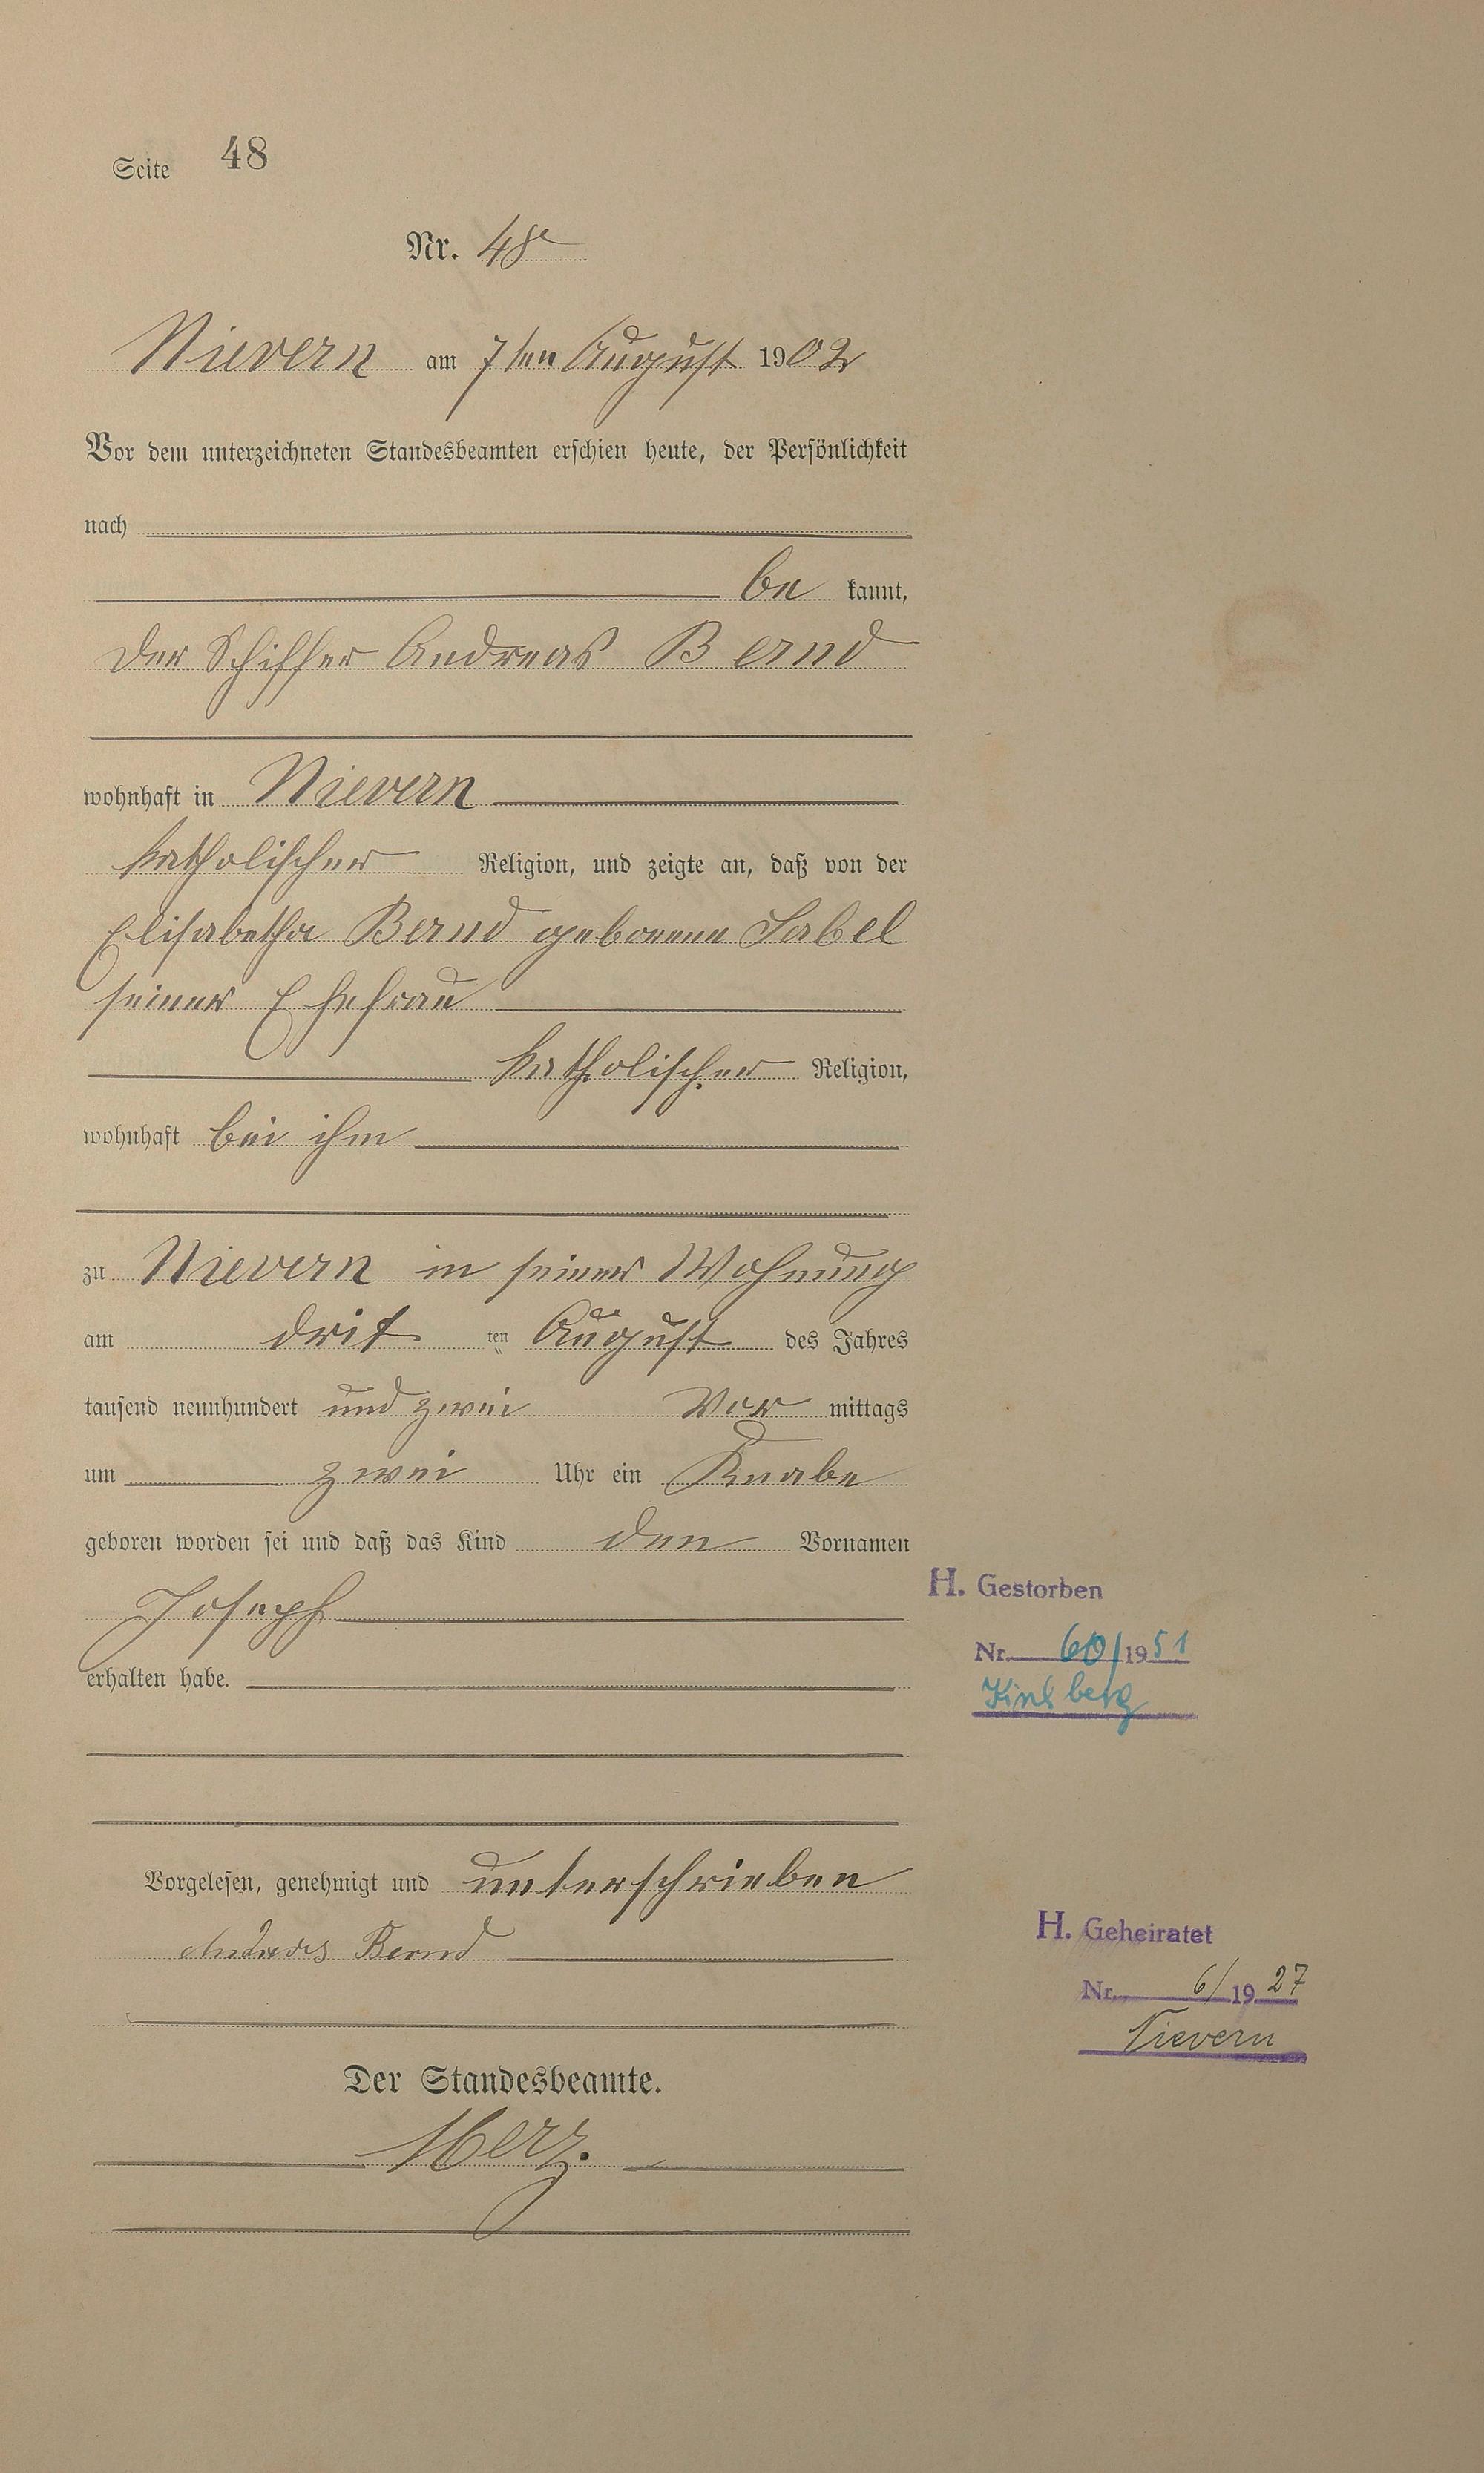 Seite 48
Nr. 48
Nievern am 7ten August 1902
Vor dem unterzeichneten Standesbeamten erschien heute, der Persönlichkeit
nach
be kannt,
der Schiffer Andreas Bernd
wohnhaft in Nievern
katholischer Religion, und zeigte an, daß von der
Elisabetha Bernd geborene Sabel
seiner Ehefrau
katholischer Religion,
wohnhaft bei ihm
zu Nievern in seiner Wohnung
am drit ten August des Jahres
tausend neunhundert und zwei Vor mittags
um zwei Uhr ein Knabe
geboren worden sei und daß das Kind den Vornamen
Joseph
erhalten habe.
H. Gestorben
Nr. 60/1951
Vorgelesen, genehmigt und unterschrieben
Andreas Bernd
H. Geheiratet
Nr. 6/1927
Nievern
Der Standesbeamte.
Merz.